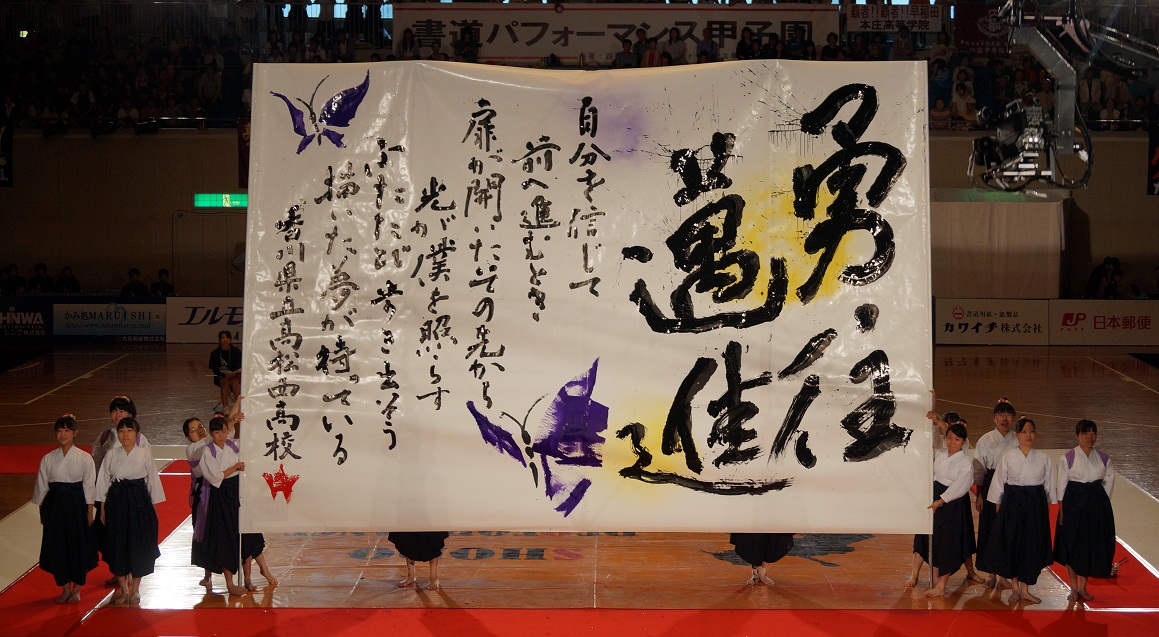 書道パフォーマンス甲子園
本庄高等学院
勇往
邁進
自分を信じて
前へ進むとき
扉が開いたその先から
光が僕を照らす
ふたたび歩き出そう
描いた夢が待っている
香川県立高松西高校
HNWA
かみ処MARUISHI
エルモ
書道用紙・紙製品
カワイチ株式会社
JP 日本郵便
SHODO